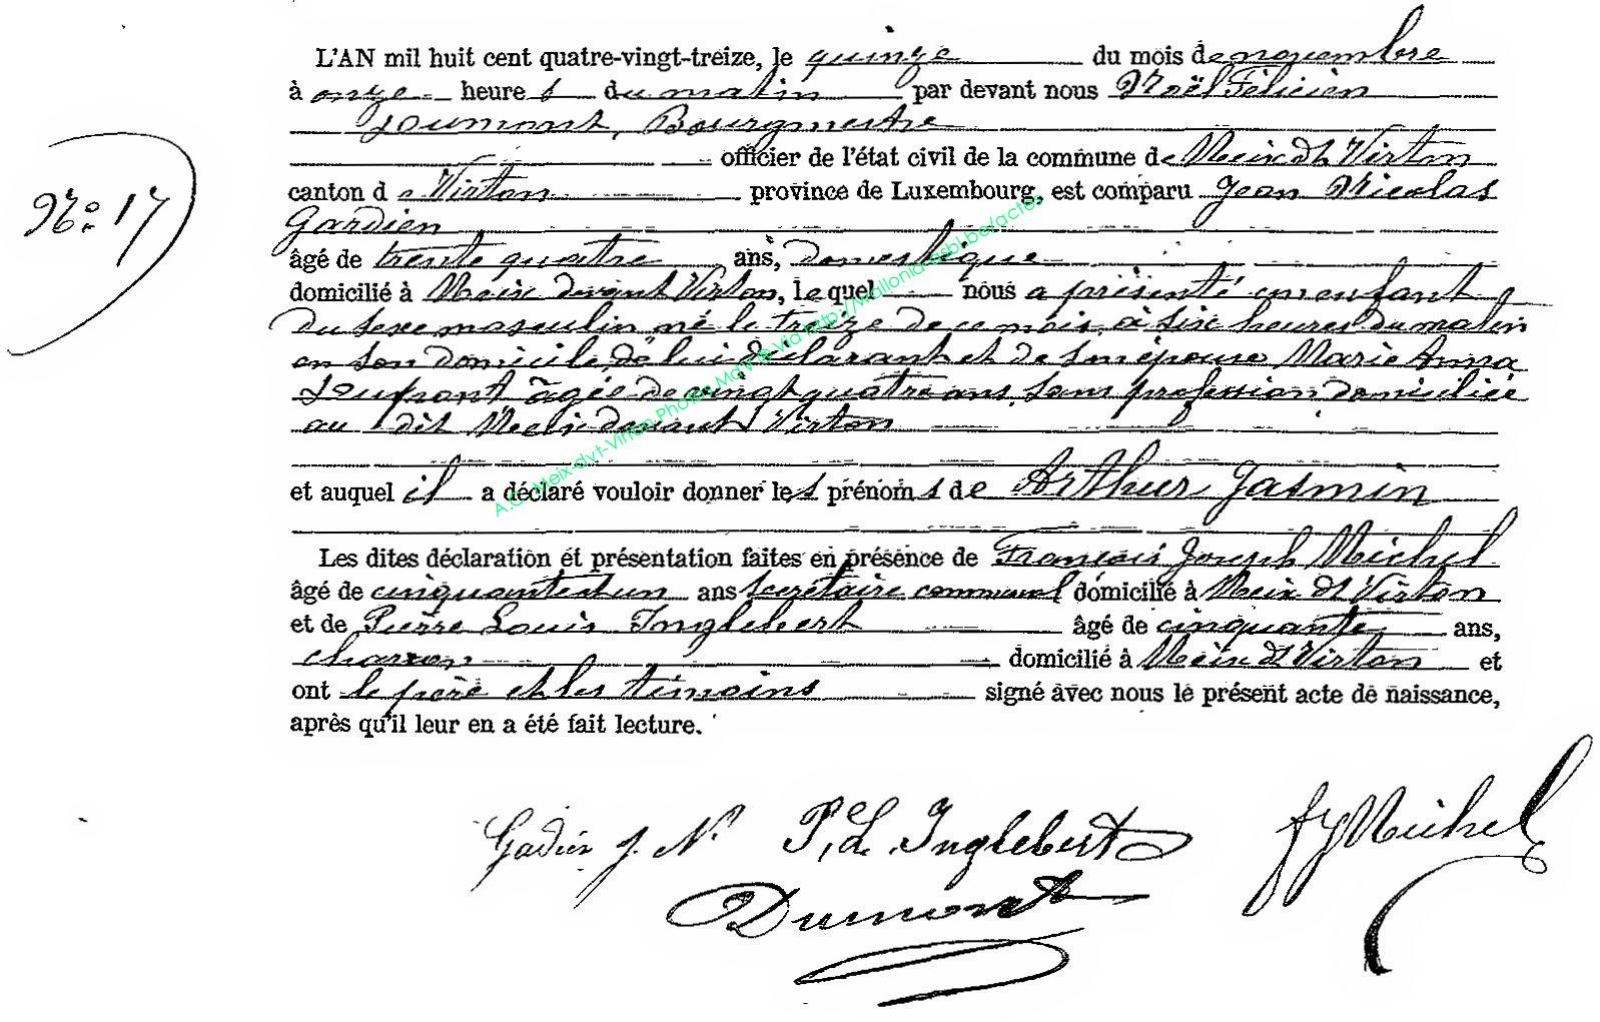 L'AN mil huit cent quatre-vingt-treize, le quinze du mois de novembre
à onze heures du matin par devant nous Noël Félicien
Dumont, Bourgmestre
officier de l'état civil de la commune de Meix dt Virton
N°: 17
canton de Virton province de Luxembourg, est comparu Jean Nicolas
Gardien
âgé de trente quatre ans, domestique
domicilié à Meix devant Virton, lequel nous a présenté un enfant
du sexe masculin né le treize de ce mois, à six heures du matin
en son domicile, de lui déclarant et de son épouse Marie Anna
âgée de vingt quatre ans, sans profession domiciliée
au dit Meix devant Virton
et auquel il a déclaré vouloir donner les prénoms de Arthur Jasmin
Les dites déclaration et présentation faites en présence de François Joseph Michel
âgé de cinquante et un ans secrétaire communal domicilié à Meix dt Virton
et de Pierre Louis Inglebert âgé de cinquante ans,
charron domicilié à Meix dt Virton et
ont le père et les témoins signé avec nous le présent acte de naissance,
après qu'il leur en a été fait lecture.
Gadien J. N. P. L. Inglebert fJMichel
Dumont